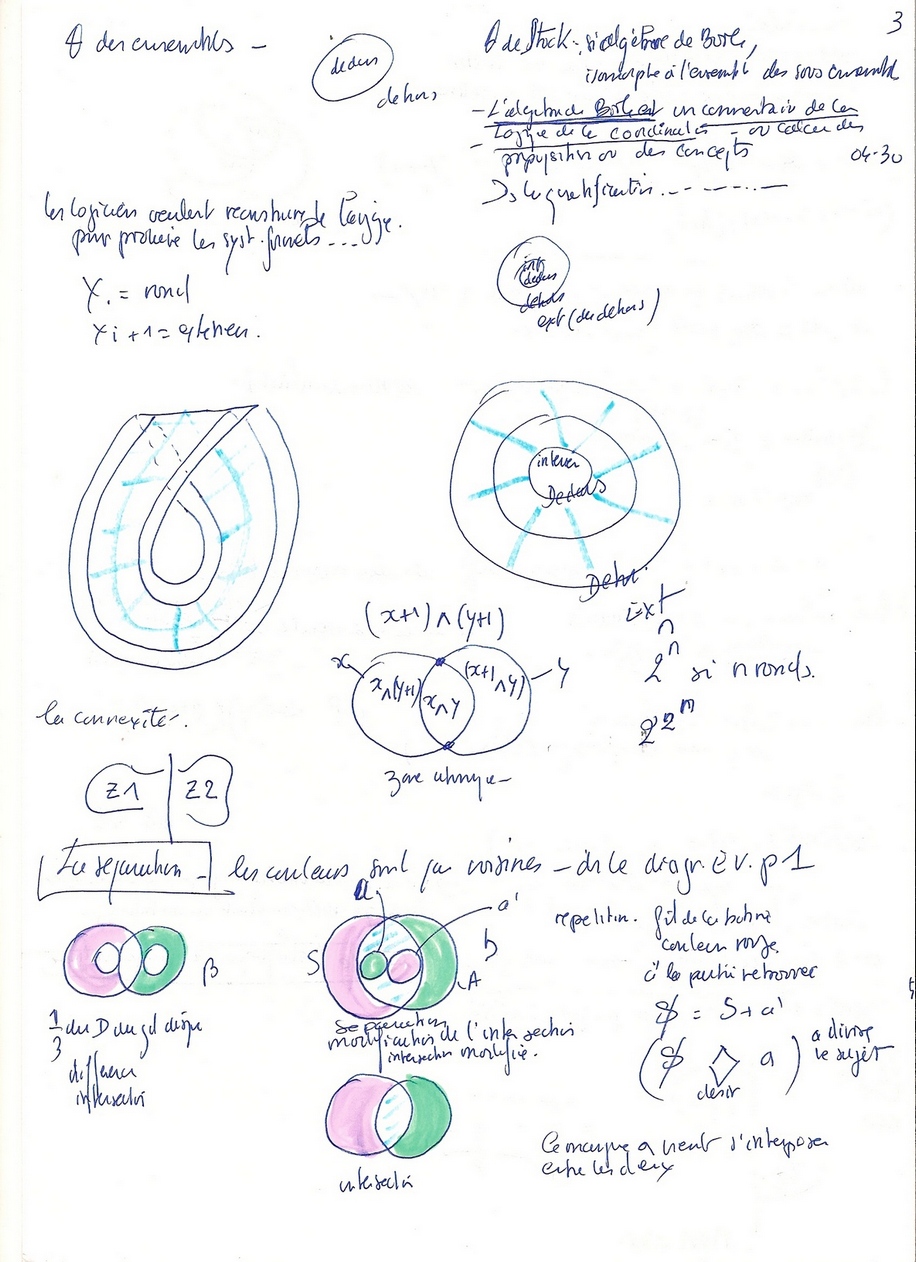 3
θ des ensembles –
dedans
dehors
θ de Stock : si algèbre de Boole,
isomorphe à l'ensembl des sous ensembl
– L'algèbre de Boole est un commentaire de la
– logique de la coordination – ou calcul des
proposition ou des concepts
04-30
Ds la quantification - - - - - -
les logiciens veulent reconstruire le langage.
pour produire les syst. formels ....
= rond
+ 1 = exterieur.
int
dedans
dehors
ext (du dehors)
interieur
Dedans
Dehors
Ext
∩
2ⁿ si n ronds.
(x+1) ∧ (y+1)
x
y
x∧(y+1)
x∧y
(x+1∧y)
zone
la connexité.
Z1 Z2
La séparation – les couleurs sont voisines – ds le diagr. p 1
a
a'
S
b
A
β
1/3 du D
différence
intersection
séparation
modification de l'intersection
intersection modifiée.
intersection
repetition.
couleur rouge
à la partie retrouver
$ = S + a'
($ ◇ a)
desir
a divise
le sujet
Ce manque a vient s'interposer
entre les deux